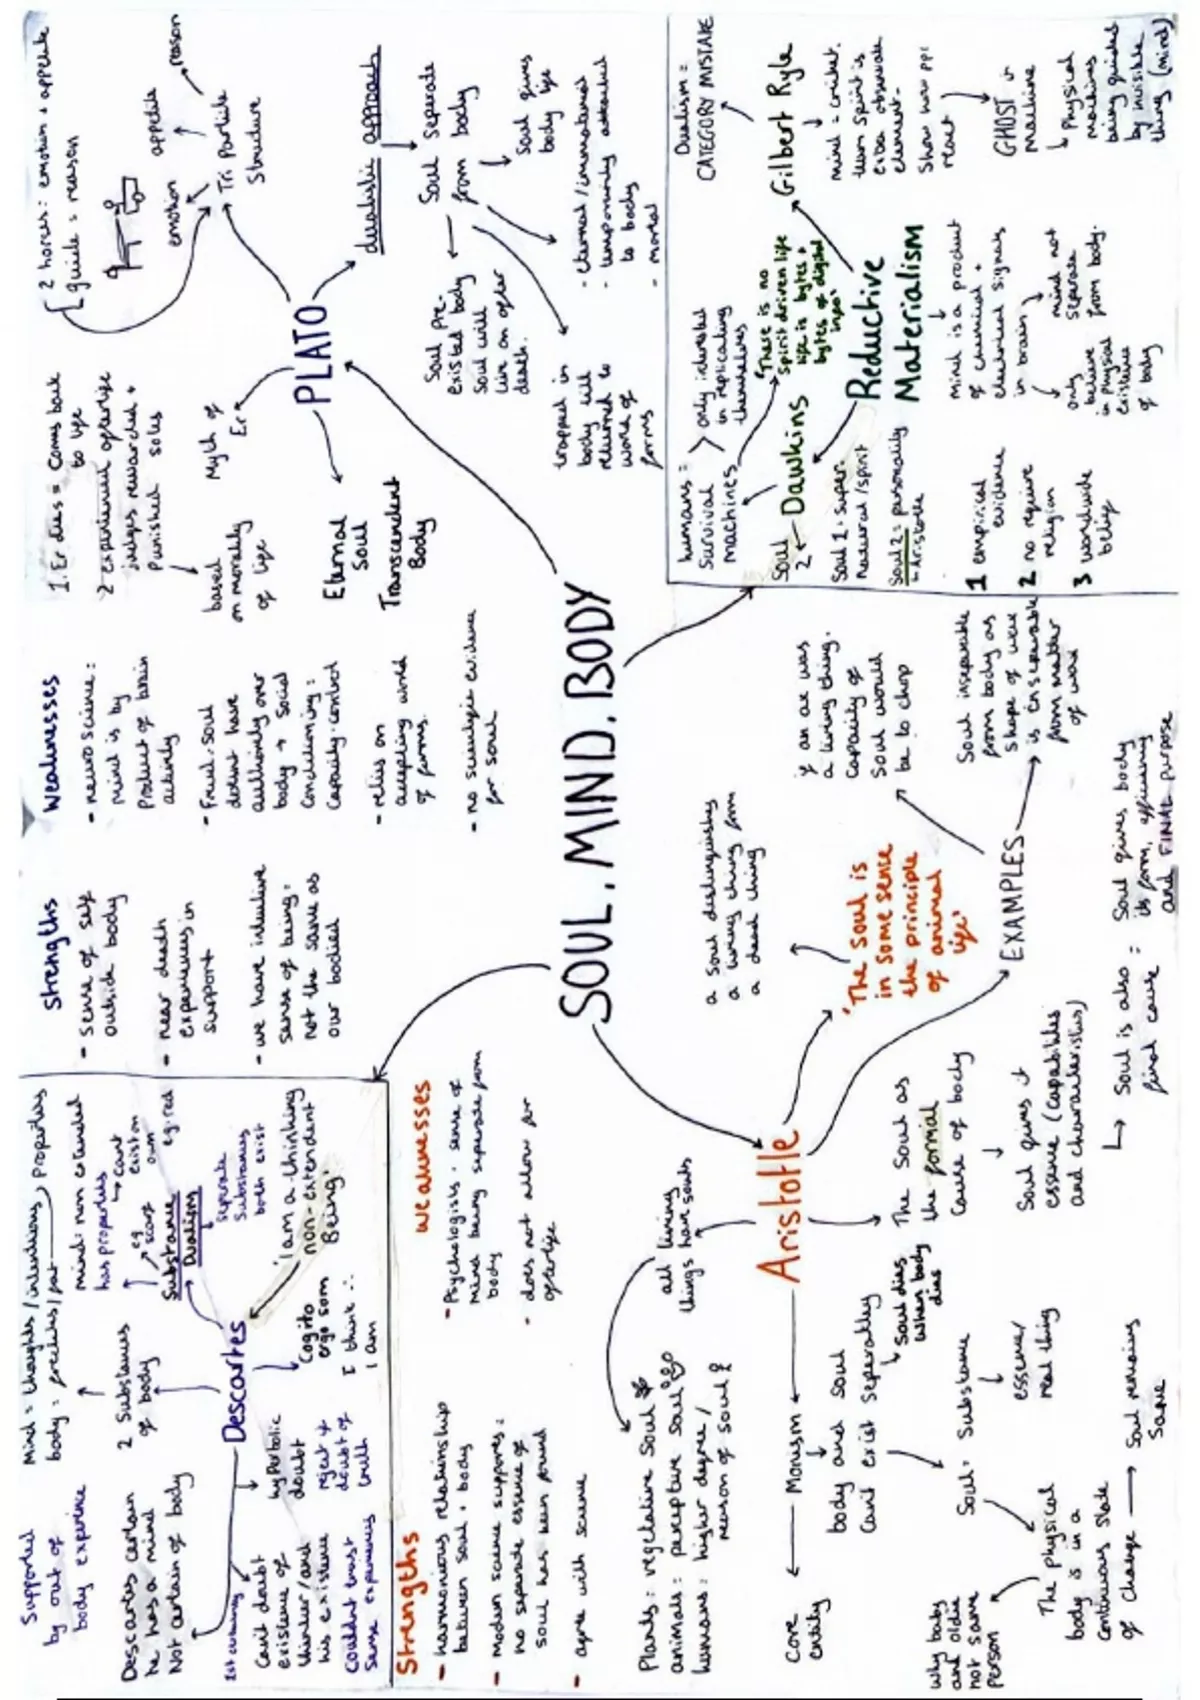 SOUL, MIND, BODY
PLATO
2 horses: emotion + appetite
guide = reason
emotion
appetite
reason
Tri Partite
Structure
dualistic approach
Soul Separate
from body
Soul gives
body life
- eternal/immaterial
temporarily attached
to body
- mortal
Soul pre-
existed body
Soul will
live on after
death.
trapped in
body till
returned to
world of
forms
Myth of
Er
1. Er dies = comes back
to life
2 experienced afterlife
judges rewarded +
Punished souls
based
on morality
of life
Eternal
Soul
Transcendent
Body
Strengths
- sense of self
outside body
- near death
experiences in
support
- we have intuitive
sense of being =
not the same as
our bodied
Weaknesses
- neuroscience:
mind is by
Product of brain
activity
- Freud: soul
doesnt have
authority over
body → Social
Conditioning =
Capacity control
- relies on
accepting world
of forms.
- no scientific evidence
for soul
Reductive
Materialism
mind is a product
of chemical +
electrical signals
in brain
only
believe
in Physical
existence
of body
mind not
separate
from body.
Gilbert Ryle
Dualism =
CATEGORY MISTAKE
mind = cricket.
team spirit is
element-
Show how ppl
react
GHOST in
machine
Physical
machines
being guided
by invisible
things (mind)
Dawkins
humans =
Survival
machines
only interested
in replicating
themselves
'There is no
spirit driven life
life is bytes +
bytes of digital
info'
Soul
2
Soul 1 = Super-
natural/spirit
Soul 2 = personality
Aristotle
1 empirical
evidence
2 no require
religion
3 worldwide
belief
Descartes
Mind = thoughts/intentions
properties
2 Substances
of body
mind: non extended
has properties
eg
scarf
cant
exist on
own
eg. red
Substance
Dualism
separate
substances
both exist
'I am a thinking
non-extendent
Being'
Cogito
ergo som
I think ∴
I am
hyperbolic
doubt
reject +
doubt of
truth
1st certainty
Cant doubt
existence of
thinker/and
his existence
couldnt trust
sense experiences
Descartes certain
he has a mind
Not certain of body
Supported
by out of
body experience
Strengths
- harmonious relationship
between soul + body
- Modern science supports =
no separate essence of
soul has been found
- agree with science
weaknesses
- Psychologists - sense of
mind being separate from
body
- does not allow for
afterlife
Aristotle
all living
things have souls
Plants = vegetative Soul
animals = perceptive Soul
humans: higher degree /
reason of soul
Monism
Core
entity
body and soul
cant exist separately
Soul dies
when body
dies
Soul= Substance
essence/
real thing
The physical
body is in a
continuous state
of change
Soul remains
Same
why baby
and oldie
not same
person
The Soul as
the formal
cause of body
Soul gives it
essence (capabilities
and characteristics)
Soul is also =
final cause
Soul gives body
its form, efficiency
and FINAL purpose
'The soul is
in some sense
the principle
of animal
life'
a soul distinguishes
a living thing from
a dead thing
EXAMPLES
if an axe was
a living thing.
Capacity of
Soul would
be to chop
Soul inseparable
from body as
shape of wax
is inseparable
from matter
of wax